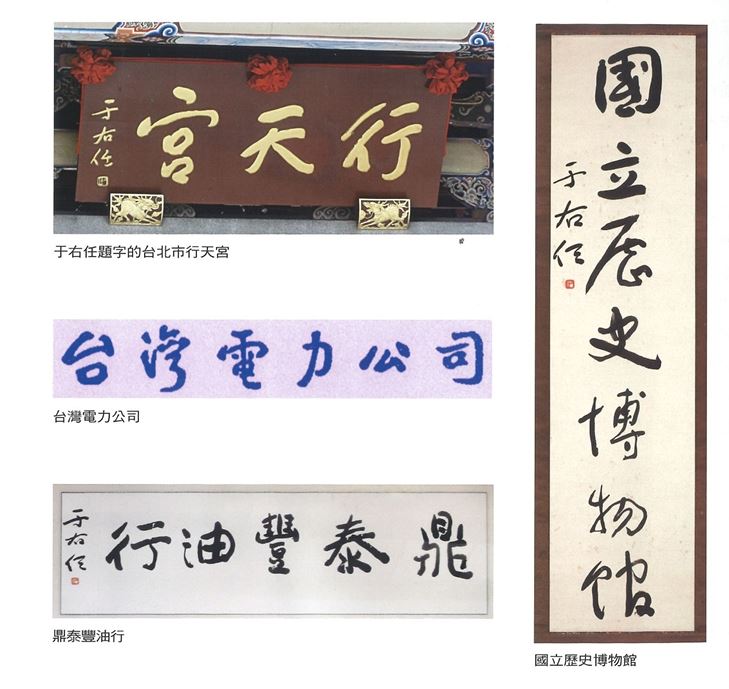 行天宮
于右任
于右任題字的台北市行天宮
台灣電力公司
台灣電力公司
鼎泰豐油行
于右任
鼎泰豐油行
國立歷史博物館
于右任
國立歷史博物館